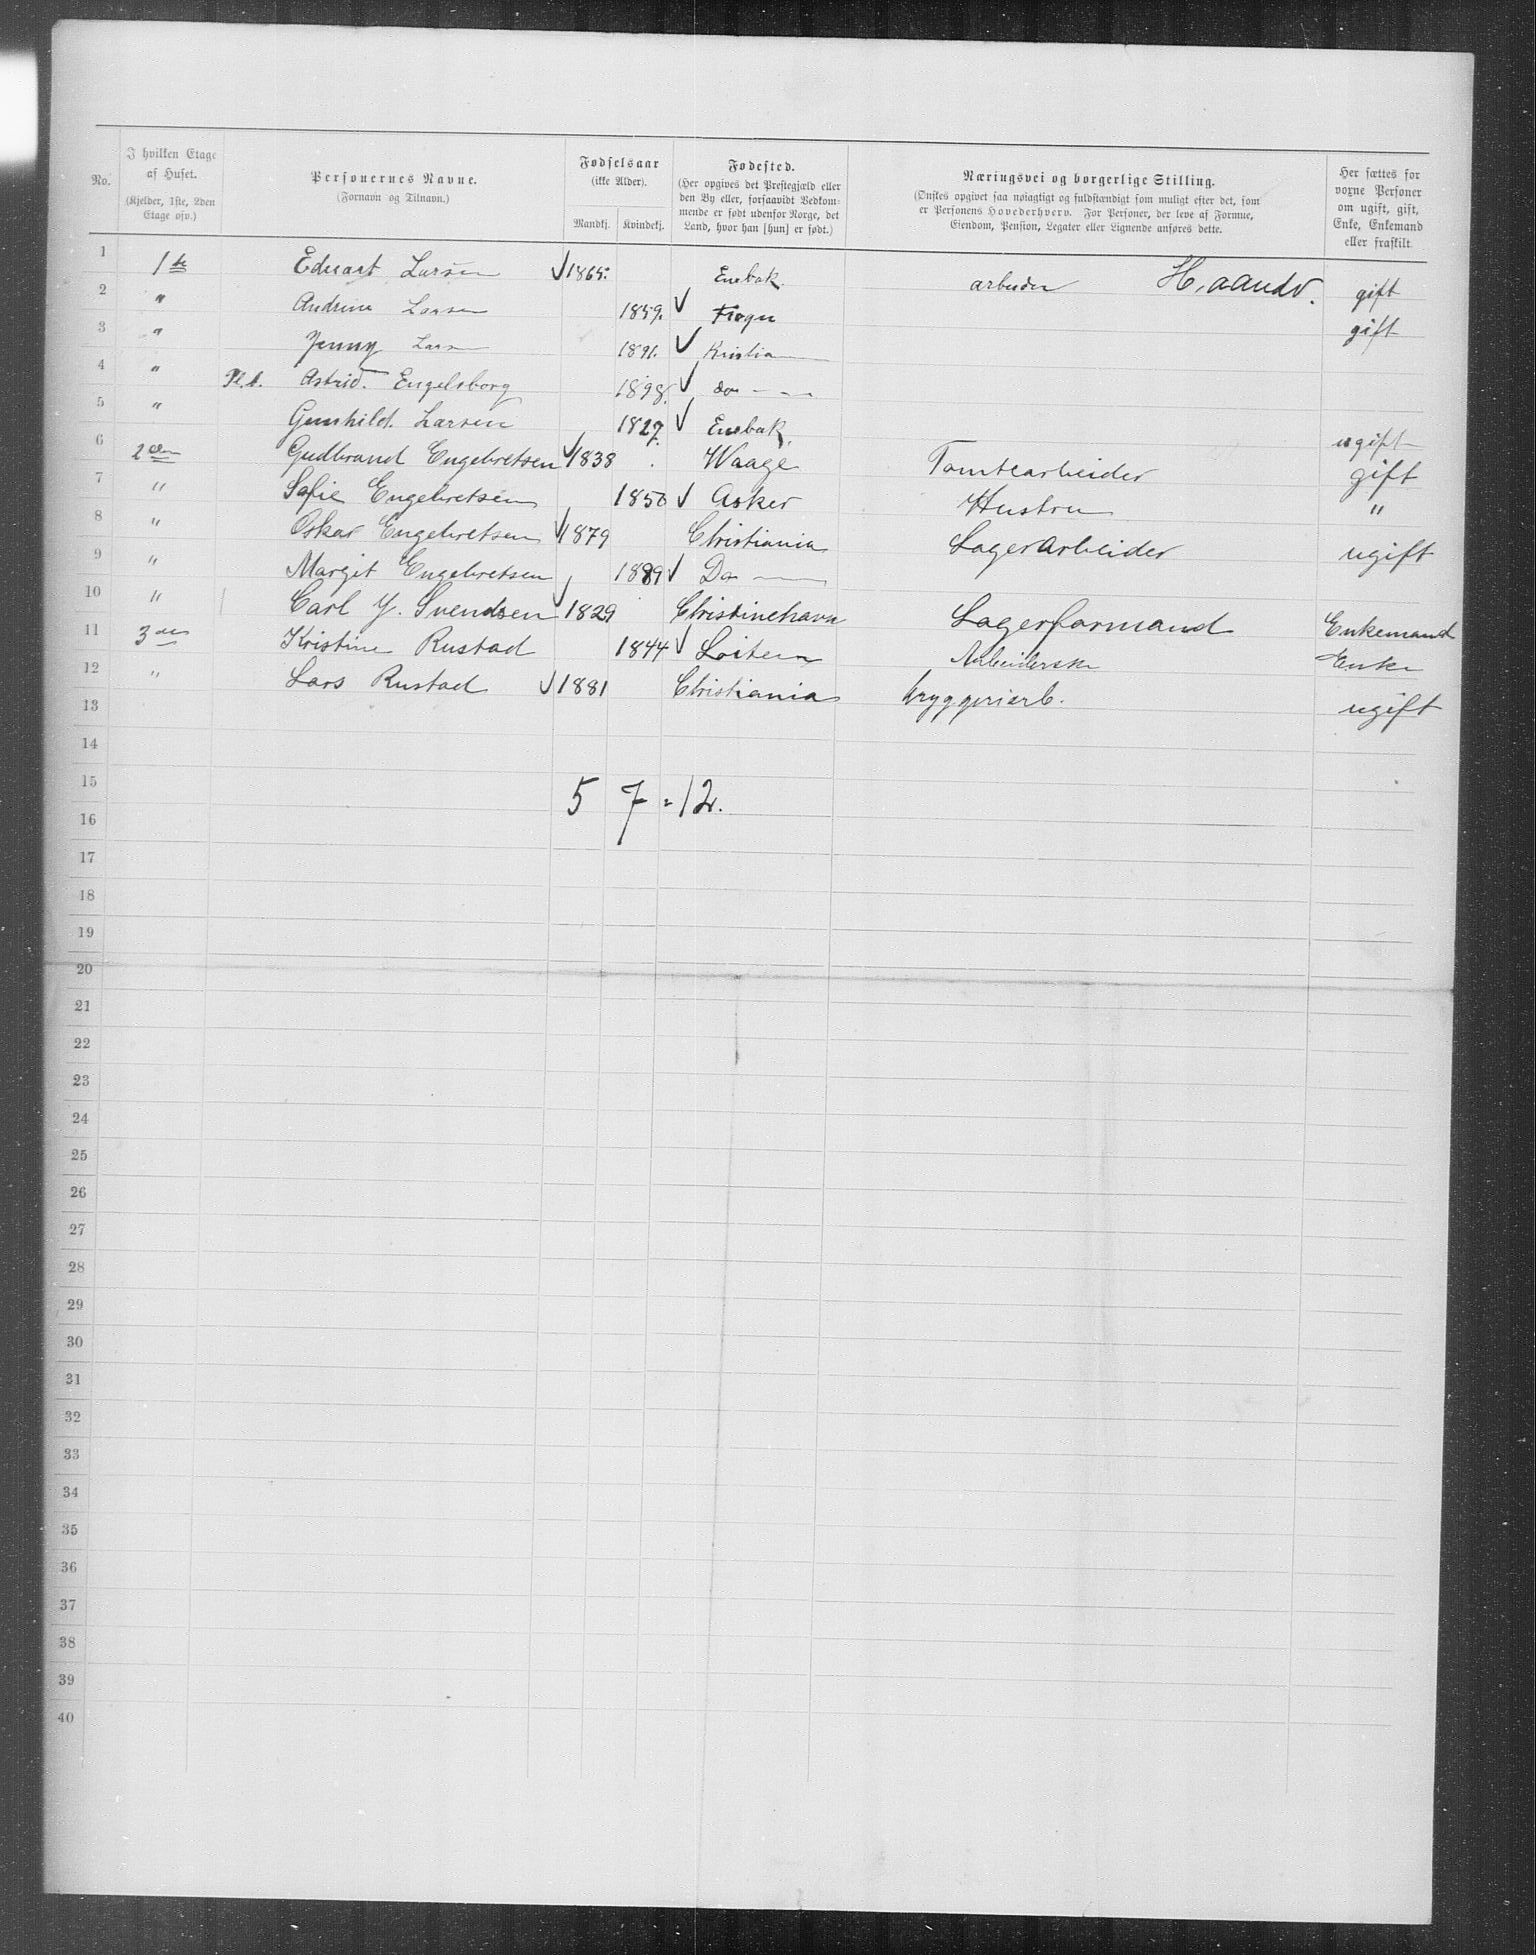 No. | I hvilken Etage af Huset. (Kjelder, 1ste, 2den Etage osv.) | Personernes Navne. (Fornavn og Tilnavn.) | Fødselsaar (ikke Alder). Mandkj. Kvindekj. | Fødested. (Her opgives det Prestegjæld eller den By eller, forsaavidt Vedkommende er født udenfor Norge, det Land, hvor han [hun] er født.) | Næringsvei og borgerlige Stilling. (Ønskes opgivet saa nøiagtigt og fuldstændigt som muligt efter det, som er Personens Hovederhverv. For Personer, der leve af Formue, Eiendom, Pension, Legater eller Lignende anføres dette.) | Her sættes for voxne Personer om ugift, gift, Enke, Enkemand eller fraskilt
1 1ste Eduart Larsen √1865. Enebak. arbeider H. aandv. gift
2 " Andrine Larsen 1859. √ Frogn gift
3 " Jenny Larsen 1891. √ Kristia
4 " Pl.b. Astrid. Engelsborg 1898. √ do
5 " Gunhild. Larsen 1827. √ Enebak. ugift
6 2den Gudbrand Engebretsen √1838 Waage Tomtearbeider gift
7 " Sofie Engebretsen 1850 √ Asker Hustru "
8 " Oskar Engebretsen √1879 Christiania Lagerarbeider ugift
9 " Margit Engebretsen 1889 √ Do
10 " Carl J. Svendsen √1829 Christinehavn Lagerformand Enkemand
11 3die Kristine Rustad 1844 √ Løiten Arbeiderske Enke
12 " Lars Rustad √1881 Christiania bryggeriarb. ugift
13
14
15
5 7 = 12.
16
17
18
19
20
21
22
23
24
25
26
27
28
29
30
31
32
33
34
35
36
37
38
39
40